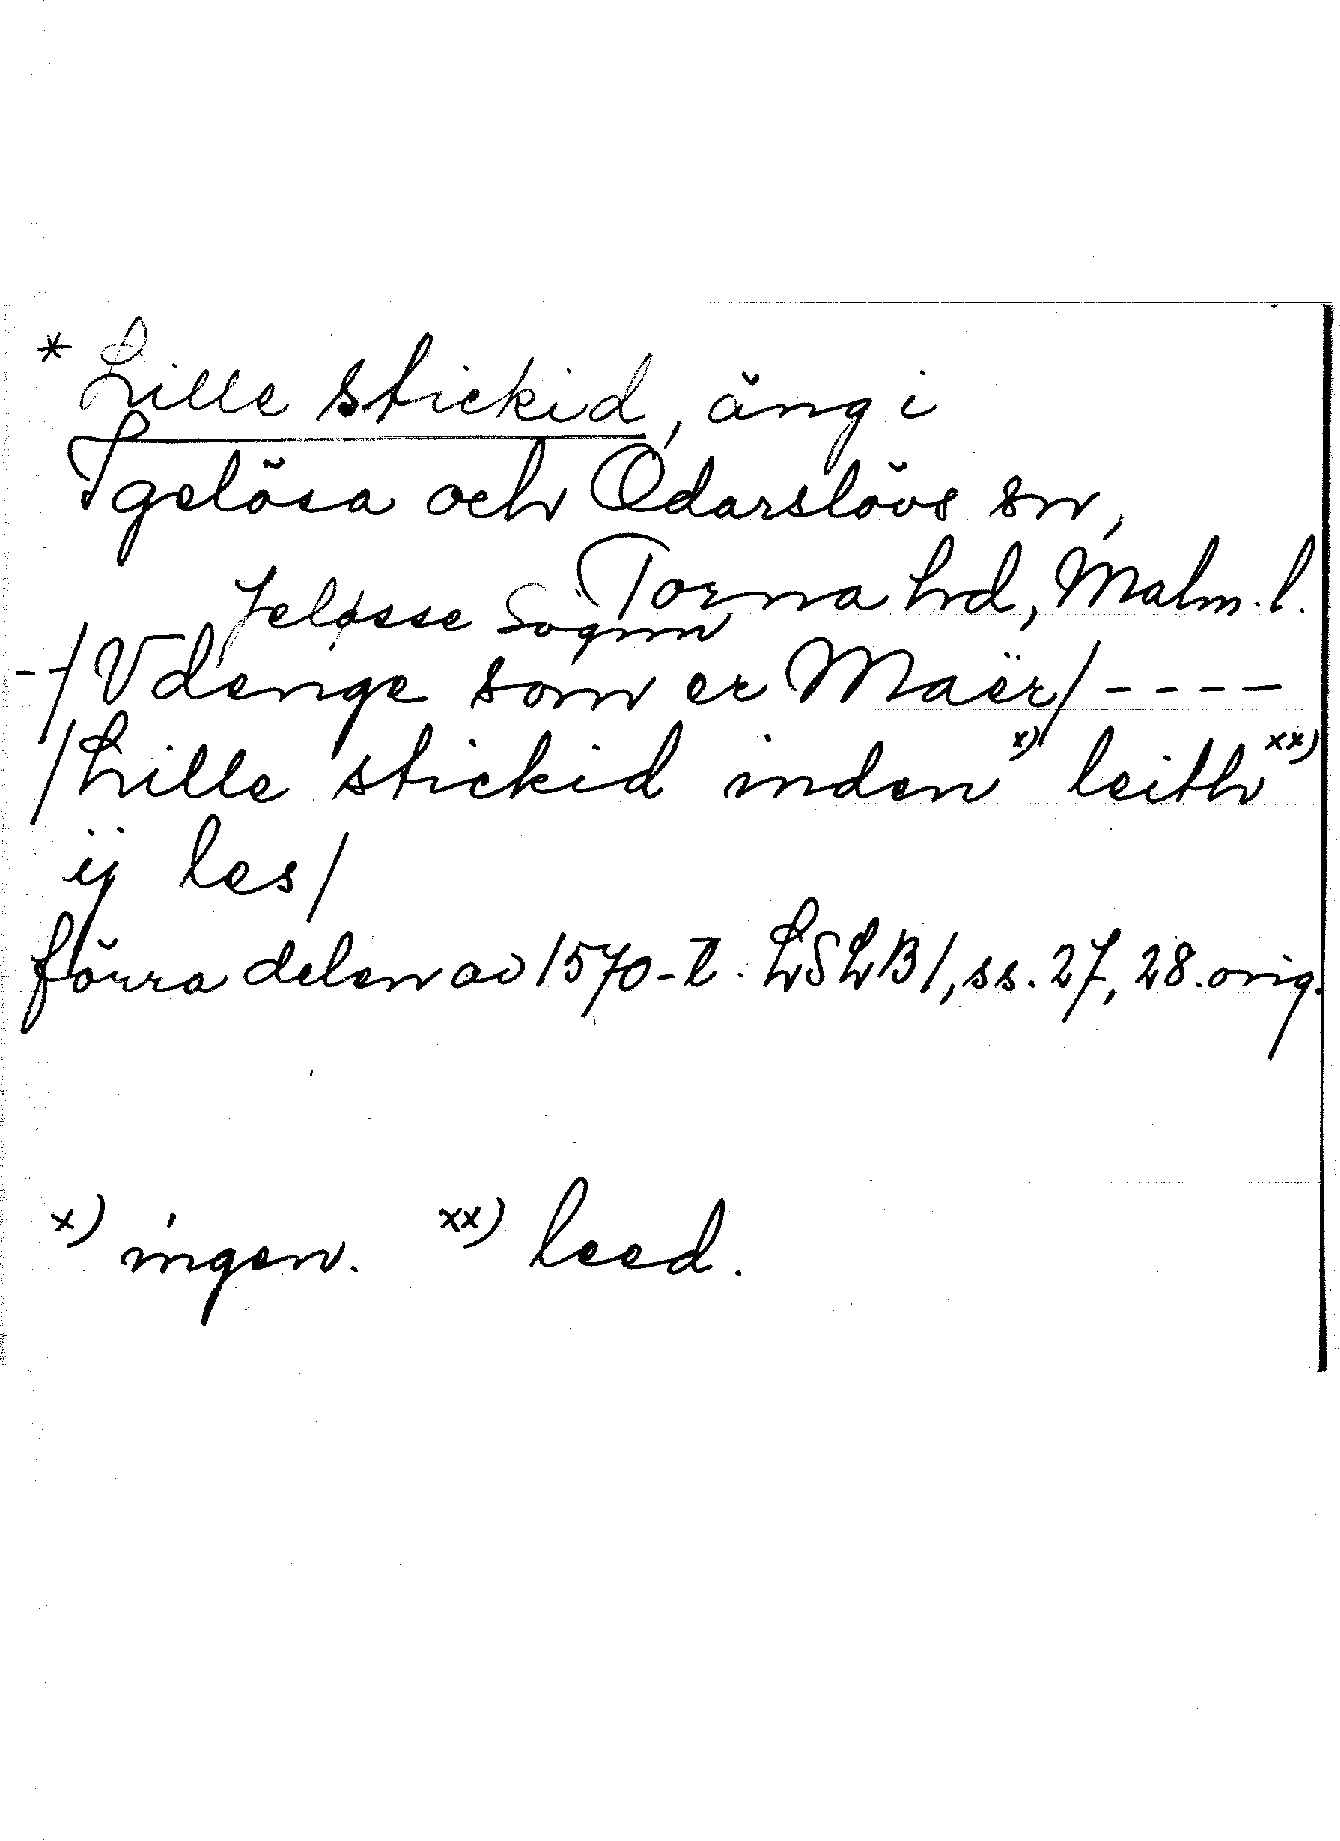 * Lille stickid, äng i
Igelösa och Odarslövs sn,
Torna hrd, Malm. l.
Jeløsse Sognn
--/Vdenge som er Maër/----
/Lille stickid inden x) leith xx)
ij les/
förra delen av 1570-t. LSLB1, ss. 27, 28. orig.
x) ingen. xx) leed.